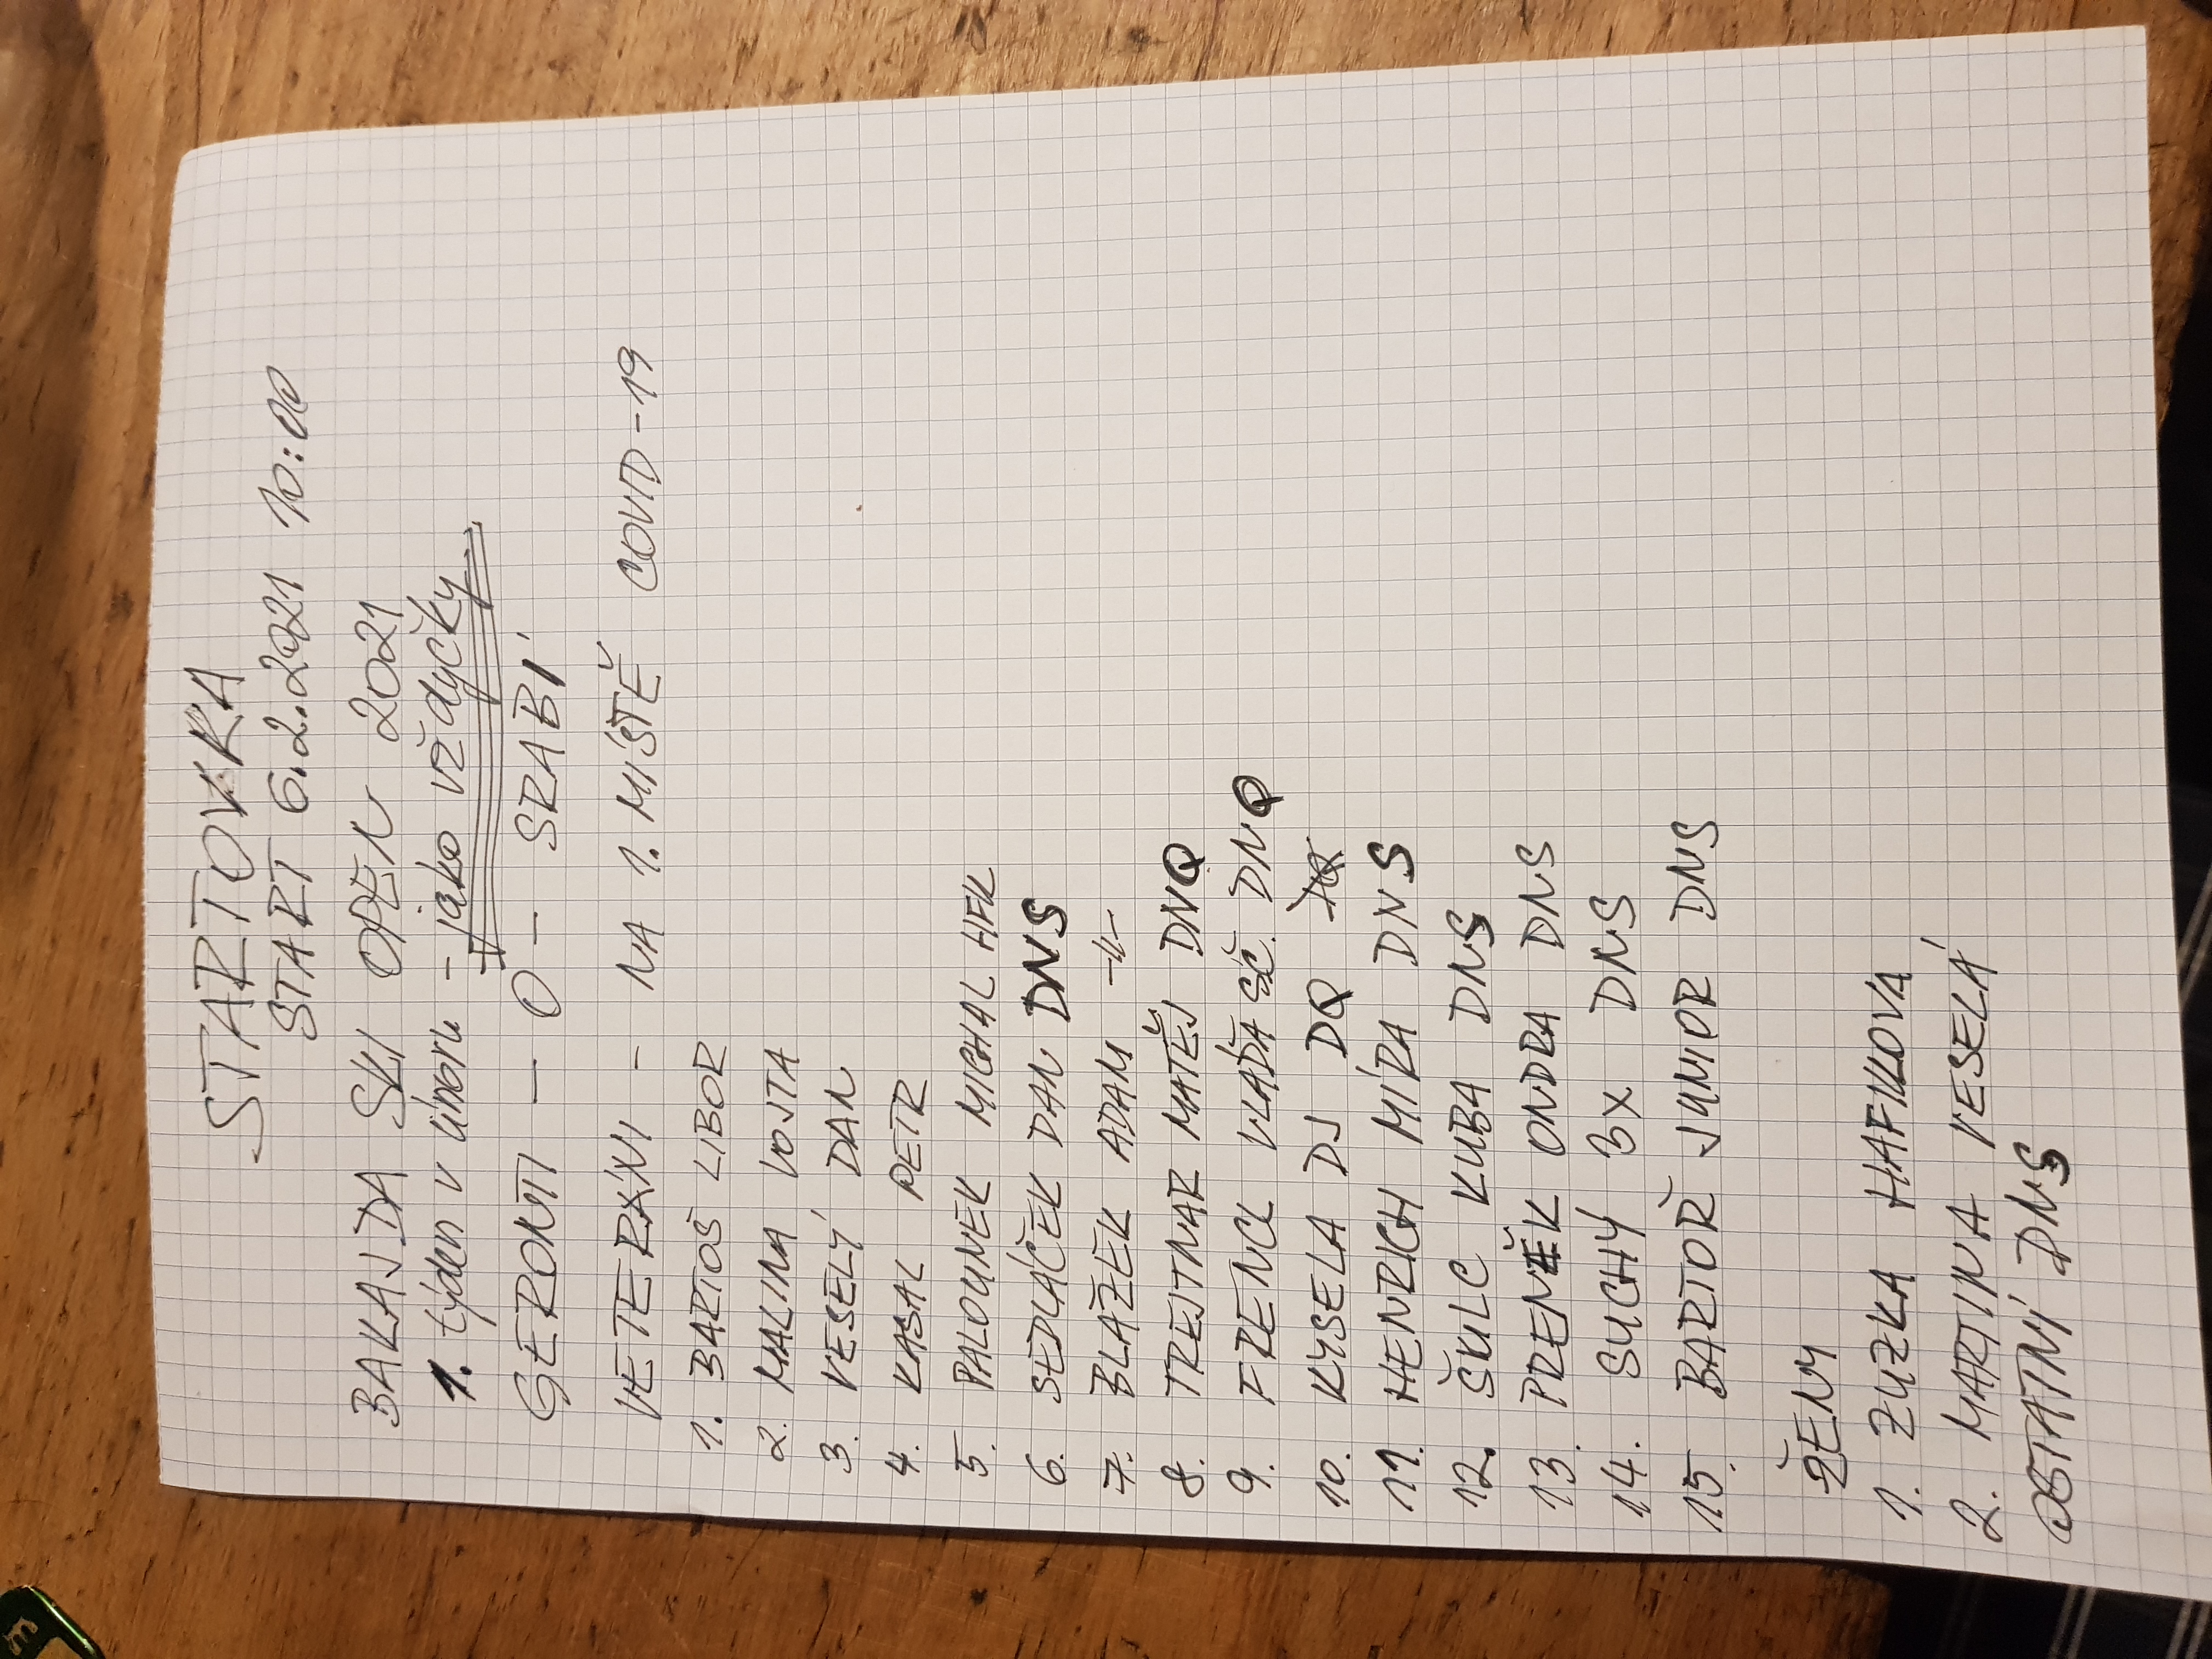 STARTOVKA
START 6.2.2021 10:00
BAKAJDA SKI OPEN 2021
1. týden v únoru - jako vždycky
GERONTI - 0 - SRABI
VETERÁNI - NA 1. MÍSTĚ COVID-19
1. BARTOŠ LIBOR
2. MALINA VOJTA
3. VESELÝ DAN
4. KASAL PETR
5. PALOUNEK MICHAL HFK
6. SEDLÁČEK DAN DNS
7. BLAŽEK ADAM -||-
8. TREJTNAR MATĚJ DNQ
9. FRENCL VLÁĎA SČ. DNQ
10. KYSELA DJ DQ
11. HENRICH MÍRA DNS
12. ŠKULC KUBA DNS
13. PRENĚK ONDRA DNS
14. SUCHÝ 3x DNS
15. BARTOŘ JUNIOR DNS
ŽENY
1. ZUZKA HAFIKOVA
2. MARTINA VESELÁ
OSTATNÍ DNS